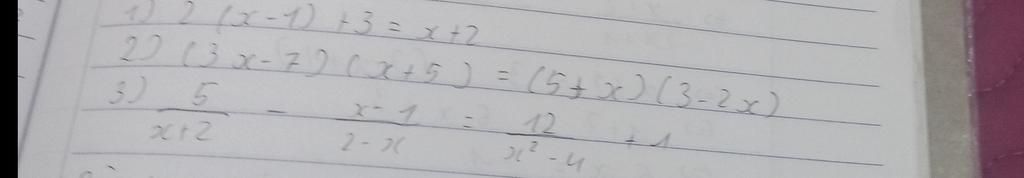 1) 2 (x-1) +3 = x+2
2) (3x-7) (x+5) = (5+x) (3-2x)
3) 5/(x+2) - (x-1)/(2-x) = 12/(x²-4) + 1